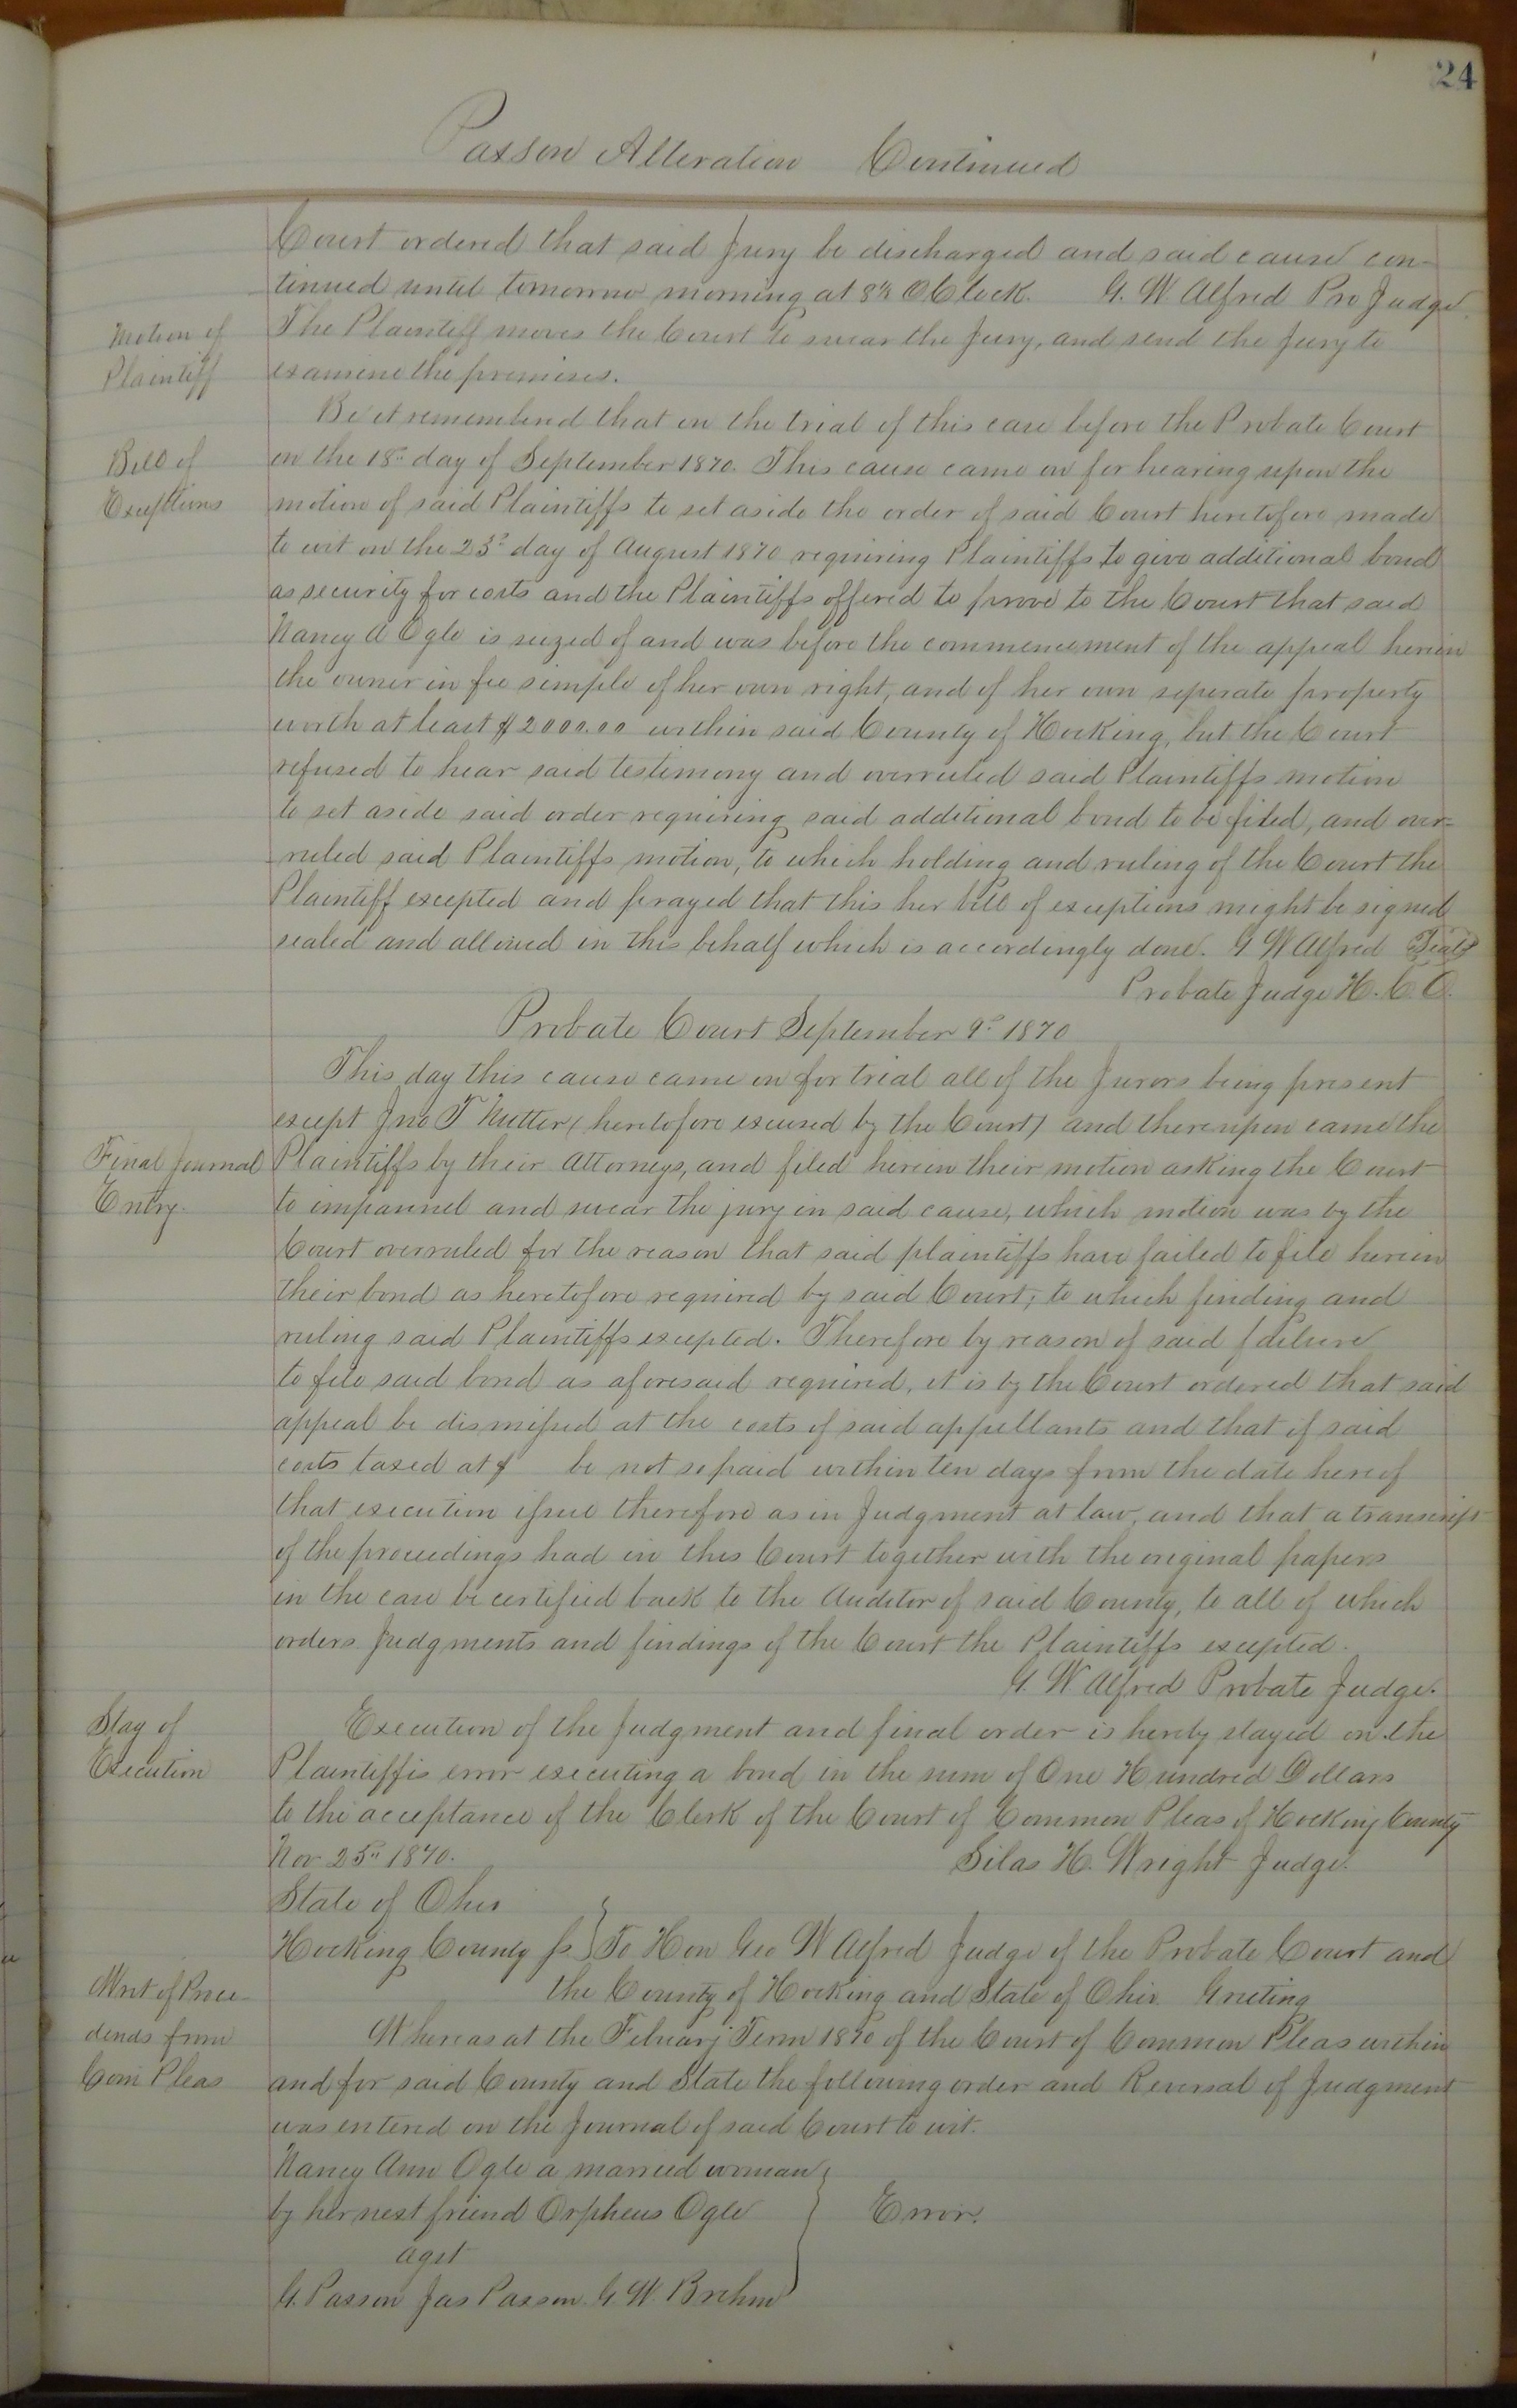 24
Passon Alteration Continued
Court ordered that said Jury be discharged and said cause con-
tinued until tomorrow morning at 8½ OClock. G. W. Alfred Pro Judge.
Motion of
Plaintiff
The Plaintiff moves the Court to swear the Jury, and send the Jury to
examine the premises.
Bill of
Exceptions
Be it rememberd that on the trial of this case before the Probate Court
on the 18" day of September 1870. This cause came on for hearing upon the
motion of said Plaintiffs to set aside the order of said Court heretofore made
to wit on the 23d day of August 1870 requiring Plaintiffs to give additional bond
as security for costs and the Plaintiffs offered to prove to the Court that said
Nancy A Ogle is seized of and was before the commencement of the appeal herein
the owner in fee simple of her own right, and of her own seperate property
worth at least $2000.00 within said County of Hocking, but the Court
refused to hear said testimony and overruled said Plaintiffs motion
to set aside said order requiring said additional bond to be filed, and over-
ruled said Plaintiffs motion, to which holding and ruling of the Court the
Plaintiff excepted and prayed that this her bill of exceptions might be signed
sealed and allowed in this behalf which is accordingly done. G W Alfred Seal
Probate Judge H. C. O.
Probate Court September 9" 1870
Final Journal
Entry.
This day this cause came on for trial all of the Jurors being present
except Jno T Nutter (heretofore excused by the Court) and thereupon came the
Plaintiffs by their Attorneys, and filed herein their motion asking the Court
to impannel and swear the jury in said cause, which motion was by the
Court overruled for the reason that said plaintiffs have failed to file herein
their bond as heretofore required by said Court, to which finding and
ruling said Plaintiffs excepted. Therefore by reason of said failure
to file said bond as aforesaid required, it is by the Court ordered that said
appeal be dismissed at the costs of said appellants and that if said
costs taxed at $ be not so paid within ten days from the date hereof
that execution issue therefore as in Judgment at law, and that a transcript
of the proceedings had in this Court together with the original papers
in the case be certified back to the Auditor of said County, to all of which
orders Judgments and findings of the Court the Plaintiffs excepted.
G. W Alfred Probate Judge.
Stay of
Execution
Execution of the Judgment and final order is hereby stayed on the
Plaintiffis error executing a bond in the sum of One Hundred Dollars
to the acceptance of the Clerk of the Court of Common Pleas of Hocking County
Nov 25" 1870. Silas H. Wright Judge.
State of Ohio
Hocking County ss } To Hon Geo W Alfred Judge of the Probate Court and
the County of Hocking and State of Ohio Greeting
Writ of Proce-
dendo from
Com Pleas
Whereas at the Febuary Term 1870 of the Court of Common Pleas within
and for said County and State the following order and Reversal of Judgment
was entered on the Journal of said Court to wit.
Nancy Ann Ogle a married woman
by her next friend Orpheus Ogle } Error.
agst
G. Passon Jas Passon G. W. Brehm